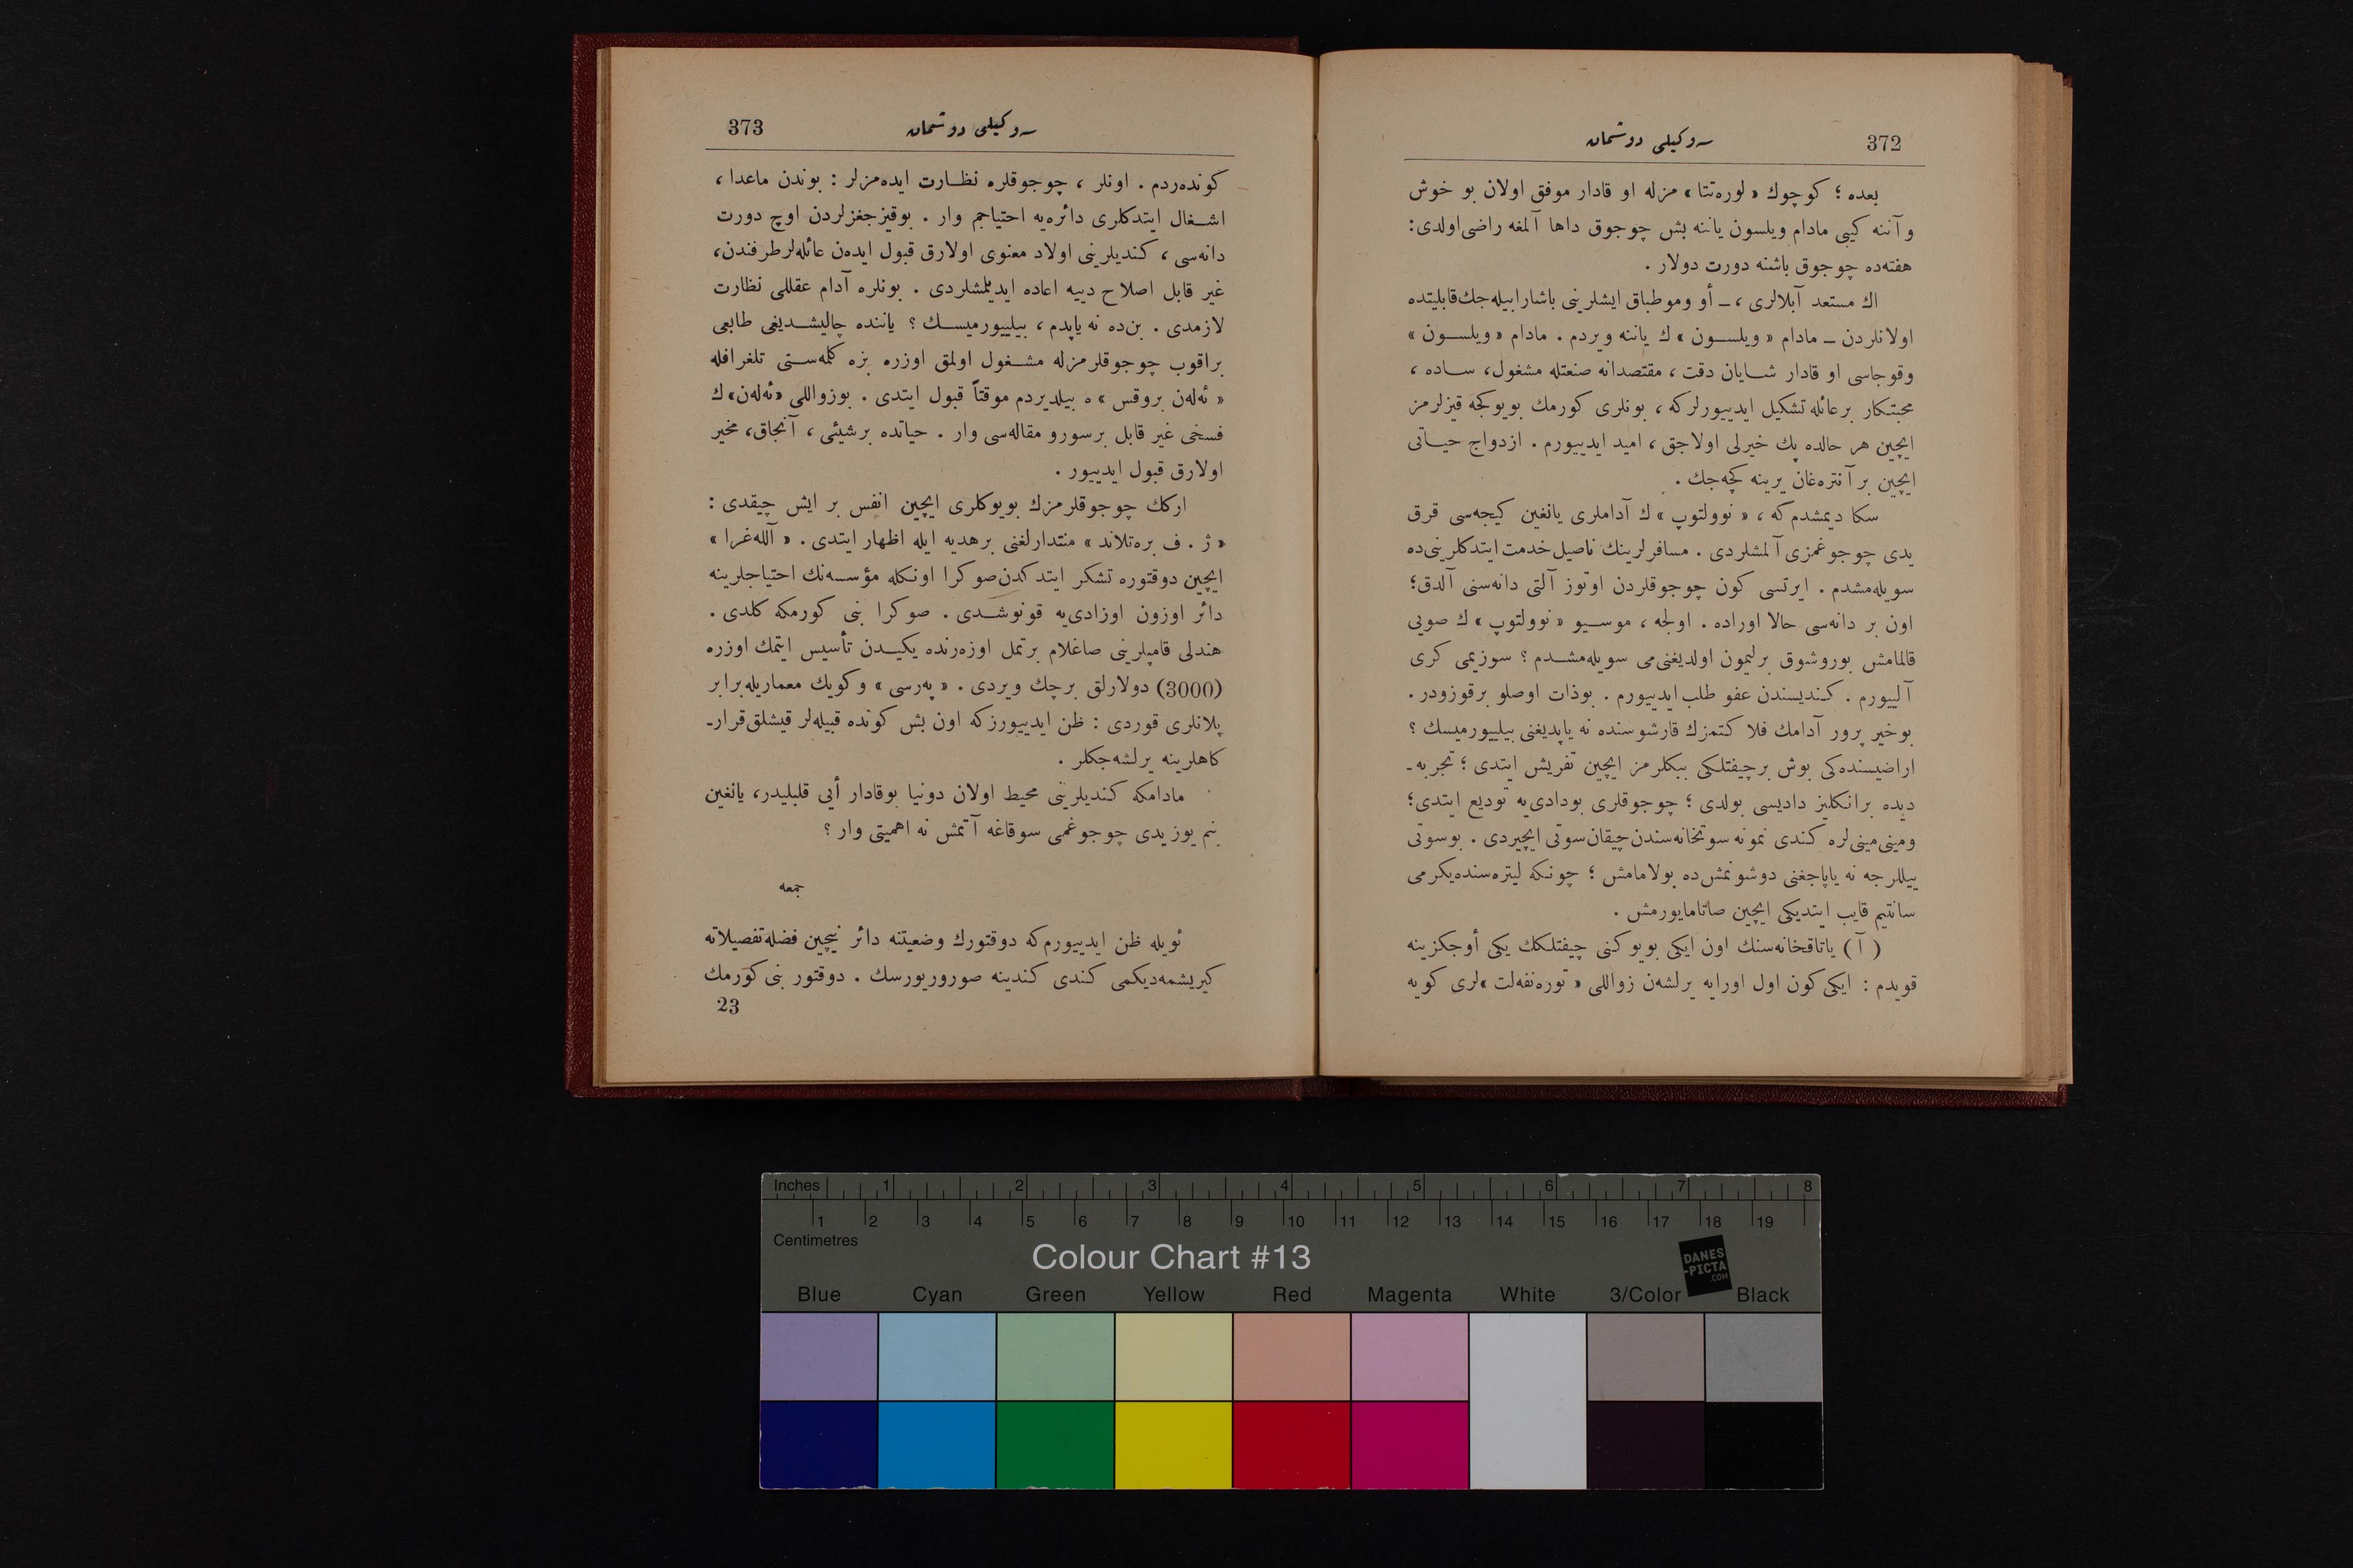 372
سوكيلى دوشمان
بعده ؛ كوچوك « لوره‌تتا » مزله او قادار موفق اولان بو خوش
و آننه كيبى مادام ويلسون ياننه بش چوجوق داها آلمغه راضى اولدى :
هفته‌ده چوجوق باشنه دورت دولار .
اك مستعد آبلالرى ، ـ أو وموطباق ايشلرينى باشارابيله‌جك قابليتده
اولانلردن ـ مادام « ويلسون » ك ياننه ويردم . مادام « ويلسون »
وقوجاسى او قادار شايان دقت ، مقتصدانه صنعتله مشغول ، ساده ،
محبتكار بر عائله تشكيل ايدييورلركه ، بونلرى كورمك بويوكجه قيزلرمز
ايچين هر حالده پك خيرلى اولاجق ، اميد ايدييورم . ازدواج حياتى
ايچين بر آنتره‌غان يرينه كچه‌جك .
سكا ديمشدم كه ، « نوولتوپ » ك آداملرى يانغين كيجه‌سى قرق
يدى چوجوغمزى آلمشلردى . مسافرلرينك ناصيل خدمت ايتدكلرينى‌ده
سويله‌مشدم . ايرتسى كون چوجوقلردن اوتوز آلتى دانه‌سنى آلدق ؛
اون بر دانه‌سى حالا اوراده . اولجه ، موسيو « نوولتوپ » ك صويى
قالمامش بوروشوق بر ليمون اولديغنى‌مى سويله‌مشدم ؟ سوزيمى كرى
آلييورم . كنديسندن عفو طلب ايدييورم . بوذات اوصلو بر قوزودر .
بوخير پرور آدامك فلا كتمزك قارشوسنده نه ياپديغنى بيلييورميسك ؟
اراضيسنده‌كى بوش بر چيفتلكى ببكلرمز ايچين تفريش ايتدى ؛ تجربه ـ
ديده بر انكليز داديسى بولدى ؛ چوجوقلرى بودادى‌يه توديع ايتدى ؛
ومينى مينى‌لره كندى نمونه سوتخانه‌سندن چيقان سوتى ايچيردى . بوسوتى
ييللرجه نه ياپاجغنى دوشونمش‌ده بولامامش ؛ چونكه ليتره‌سنده يكرمى
سانتيم قايب ايتديكى ايچين صاتامايورمش .
( آ ) ياتاقخانه‌سنك اون ايكى بويوكنى چيفتلكك يكى أوجكزينه
قويدم : ايكى كون اول اورايه يرلشه‌ن زواللى « توره‌نفه‌لت » لرى كويه
373
سوكيلى دوشمان
كونده‌ردم . اونلر ، چوجوقلره نظارت ايده‌مزلر : بوندن ماعدا ،
اشغال ايتدكلرى دائره‌يه احتياجم وار . بوقيزجغزلردن اوچ دورت
دانه‌سى ، كنديلرينى اولاد معنوى اولارق قبول ايدەن عائله‌لر طرفندن ،
غير قابل اصلاح دييه اعاده ايديلمشلردى . بونلره آدام عقللى نظارت
لازمدى . بن‌ده نه ياپدم ، بيلييورميسك ؟ ياننده چاليشديغى طابعى
براقوب چوجوقلرمزله مشغول اولمق اوزره بزه كلمه‌ستى تلغرافله
« ئه‌له‌ن بروقس » ه بيلديردم موقتاً قبول ايتدى . بوزواللى « ئه‌له‌ن » ك
فسخى غير قابل بر سورو مقاله‌سى وار . حياتده بر شيئى ، آنجاق ، مخير
اولارق قبول ايدييور .
اركك چوجوقلرمزك بويوكلرى ايچين انفس بر ايش چيقدى :
« ژ . ف بره‌تلاند » منتدارلغنى بر هديه ايله اظهار ايتدى . « آلله‌غرا »
ايچين دوقتوره تشكر ايتدكدن صوكرا اونكله مؤسسه‌نك احتياجلرينه
دائر اوزون اوزادى‌يه قونوشدى . صوكرا بنى كورمكه كلدى .
هندلى قامپلرينى صاغلام بر تمل اوزه‌رنده يكيدن تأسيس ايتمك اوزره
(3000) دولارلق بر چك ويردى . « په‌رسى » وكويك معماريله برابر
پلانلرى قوردى : ظن ايدييورز كه اون بش كونده قبيله‌لر قيشلق قرار ـ
كاهلرينه يرلشه‌جكلر .
مادامكه كنديلرينى محيط اولان دونيا بوقادار أيى قلبليدر ، يانغين
بنم يوز يدى چوجوغمى سوقاغه آتمش نه اهميتى وار ؟
جمعه
ئويله ظن ايدييورم كه دوقتورك وضعيتنه دائر نيچين فضله تفصيلاته
كيريشمه‌ديكمى كندى كندينه صوروريورسك . دوقتور بنى كورمك
23
Inches 1 2 3 4 5 6 7 8
1 2 3 4 5 6 7 8 9 10 11 12 13 14 15 16 17 18 19
Centimetres
Colour Chart #13
DANES
-PICTA
.COM
Blue Cyan Green Yellow Red Magenta White 3/Color Black